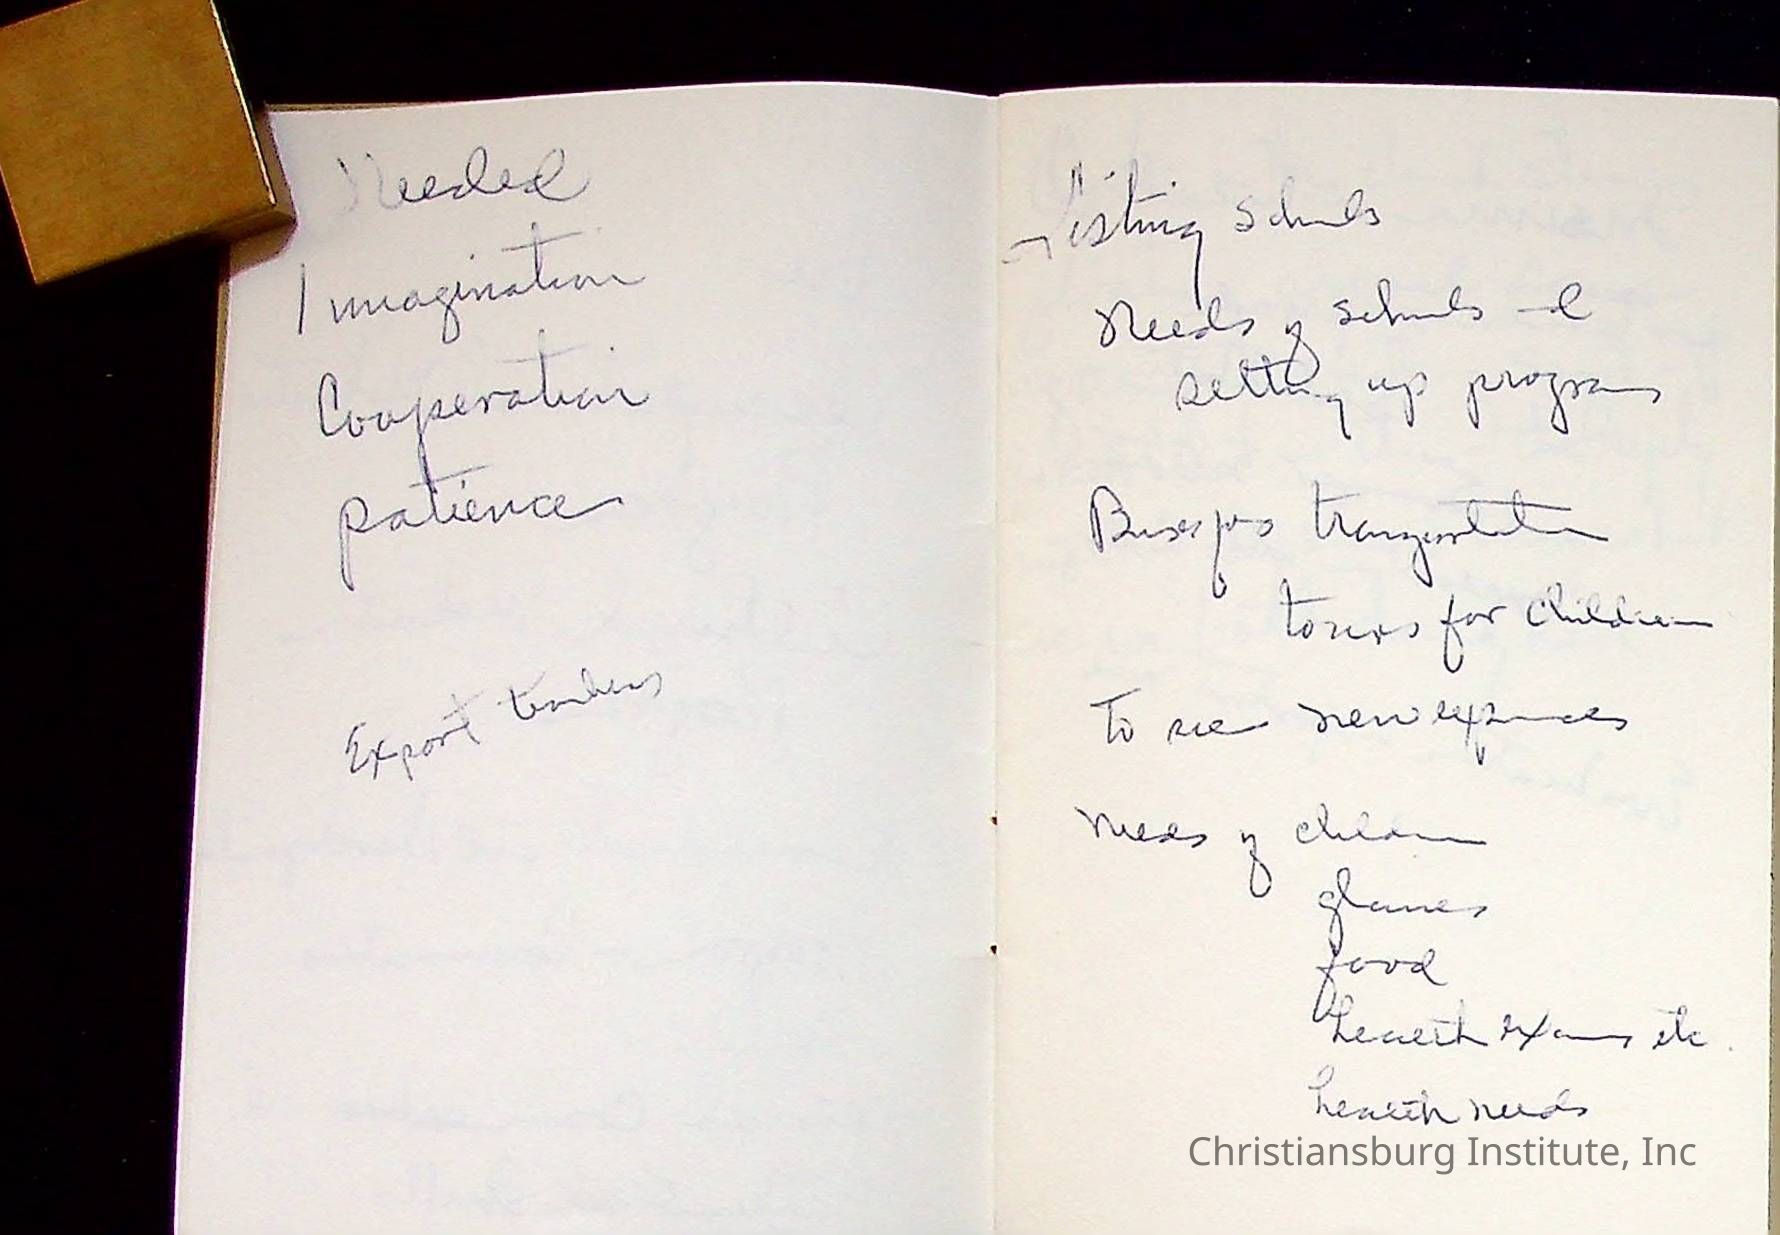 Needed
Imagination
Cooperation
patience
Export teachers
Visiting Schools
Needs of schools
setting up programs
Buses for transportation
tours for children
To see new experiences
needs of children
glasses
food
health exams etc.
health needs
Christiansburg Institute, Inc